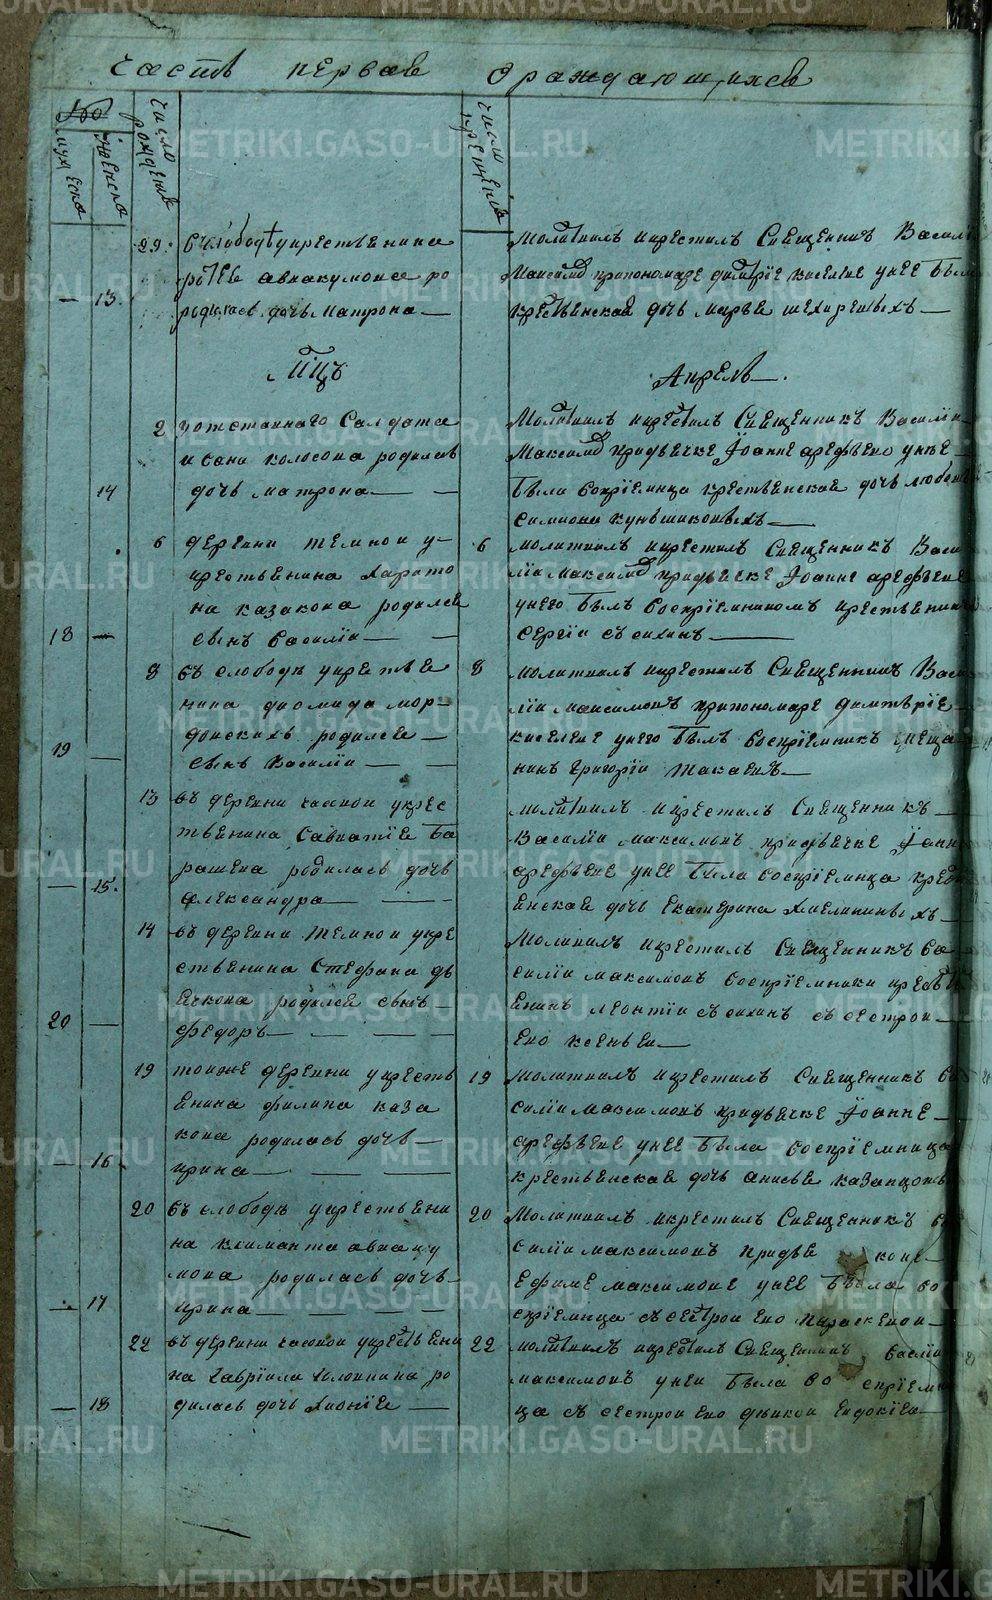 часть первая о раждающихся
№
мужеска
женска
число рождения
число крещения
29. въ слободѣ у крестьянина
аввакумова ро
— 13. родилась дочь матрона —
молитвилъ и крестилъ Священникъ Васил
Максимо при пономаре димитрие киселеве у нее была
крестьянская дочь марья
Мцъ Апрель —
2 у отставнаго Салдата
исаии колосова родилась
14 дочь матрона — —
молитвилъ и крестилъ Священникъ Василии
Максимо при дьячке Иоанне арефьево у нее
была восприемница крестьянская дочь любовь
симиона куншиковыхъ —
6 деревни темнои у
крестьянина харито
на казакова родился
18 — сынъ василии — —
6 молитвилъ и крестилъ Священникъ Васи
лии Максимо при дьячке Иоанне арефьеве
у него былъ восприемникомъ крестьянинъ
сергии —
8 въ слободѣ у крестья
нина диомида мор-
довскихъ родился —
19 — сынъ Василии — —
8 молитвилъ и крестилъ Священникъ Васи
лии максимовъ при пономаре димитрие
киселеве у него былъ восприемникъ меща
нинъ григории —
13 въ деревни часовои у крес
тьянина Савватие ба
рашева родилась дочь
— 15. александра — —
молитвилъ и крестилъ Священникъ
Василии максимовъ при дьячке Иоанн
арефьеве у нее была восприемница крест
янская дочь екатерина хмелининыхъ
14 въ деревни темнои у кре
стьянина Стефана дь
ячкова родился сынъ —
20 — федоръ — — —
Молитвилъ и крестилъ Священникъ ва
силии максимовъ восприемники кресть
янинъ леонтии съ сестрои
ево ксеньеи —
19 тоиже деревни у кресть
янина филипа каза
кова родилась дочь —
— 16. ирина — — —
19 Молитвилъ и крестилъ Священникъ ва
силии максимовъ при дьячке Иоанне —
арефьеве у нее была восприемница
крестьянская дочь анисья казанцовъ
20 въ слободѣ у крестьяни
на климанта авваку
мова родилась дочь
— 17 ирина — — —
20 Молитвилъ и крестилъ Священникъ ва
силии максимовъ
ефиме максимове у нее была во
сприемница съ сестрои ево параскевои
22 въ деревни часовои у крестьяни
на гаврила ро
— 18 дилась дочь хиония —
22 молитвилъ и крестилъ Священникъ васлии
максимовъ у неи была восприемни
ца съ сестрои ево дѣвкои евдокиеи
METRIKI.GASO-URAL.RU